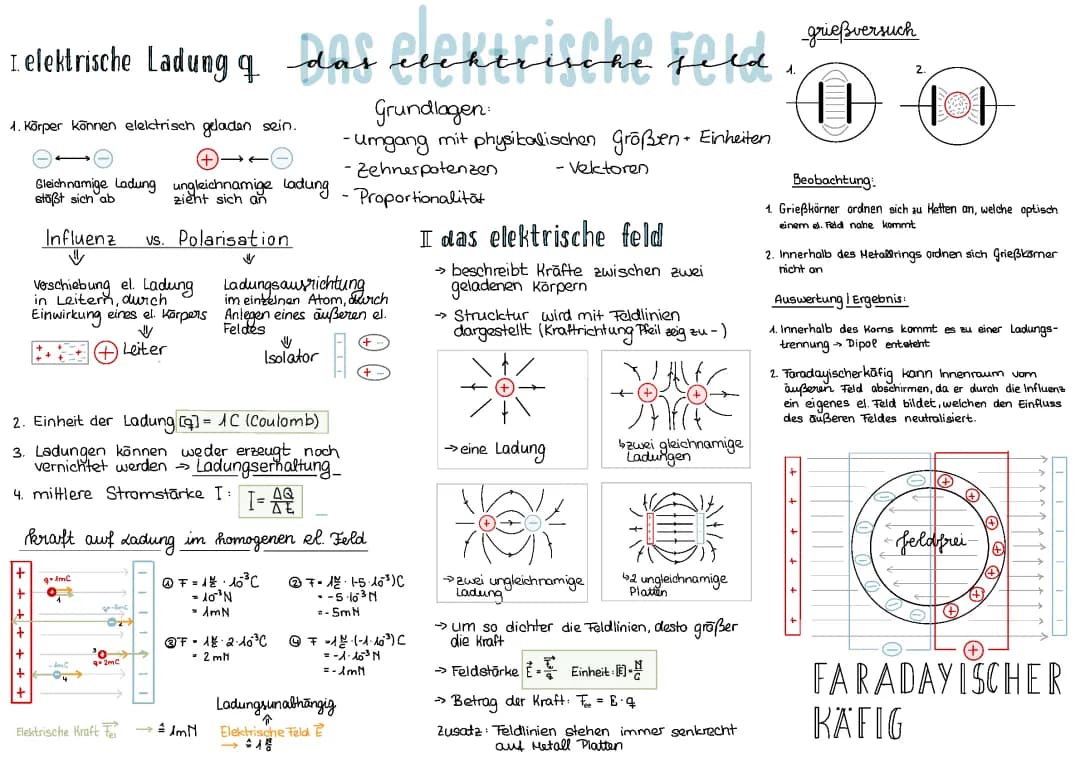 Das elektrische Feld
das elektrische feld
I. elektrische Ladung q
1. Körper können elektrisch geladen sein.
− + −
Gleichnamige Ladung
stößt sich ab
ungleichnamige Ladung
zieht sich an
Influenz vs. Polarisation
Verschiebung el. Ladung
in Leitern, durch
Einwirkung eines el. Körpers
Leiter
Ladungsausrichtung
im einzelnen Atom, durch
Anlegen eines äußeren el.
Feldes
Isolator
2. Einheit der Ladung [q] = 1C (Coulomb)
3. Ladungen können weder erzeugt noch
vernichtet werden → Ladungserhaltung
4. mittlere Stromstärke I: I = ΔQ/Δt
Kraft auf Ladung im homogenen el. Feld
q=1mC
1
q=-5mC
2
3
q=2mC
-1mC
4
① F = 1 N/C · 10⁻³C
= 10⁻³N
= 1mN
② F = 1 N/C · (-5·10⁻³)C
= -5·10⁻³N
= -5mN
③ F = 1 N/C · 2·10⁻³C
= 2mN
④ F = 1 N/C · (-1·10⁻³)C
= -1·10⁻³N
= -1mN
Elektrische Kraft F el → ≙ 1mN
Ladungsunabhängig
Elektrische Feld E
→ ≙ 1 N/C
Grundlagen:
- Umgang mit physikalischen Größen + Einheiten
- Zehnerpotenzen - Vektoren
- Proportionalität
II das elektrische feld
→ beschreibt Kräfte zwischen zwei
geladenen Körpern
→ Strucktur wird mit Feldlinien
dargestellt (Kraftrichtung Pfeil zeig zu -)
→ eine Ladung
↳ zwei gleichnamige
Ladungen
→ zwei ungleichnamige
Ladung
↳ 2 ungleichnamige
Platten
→ um so dichter die Feldlinien, desto größer
die Kraft
→ Feldstärke E = F/q Einheit: [E] = N/C
→ Betrag der Kraft: F el = E · q
Zusatz: Feldlinien stehen immer senkrecht
auf Metall Platten
grießversuch
1. 2.
Beobachtung:
1. Grießkörner ordnen sich zu Ketten an, welche optisch
einem el. Feld nahe kommt
2. Innerhalb des Metallrings ordnen sich Grießkörner
nicht an
Auswertung | Ergebnis:
1. Innerhalb des Korns kommt es zu einer Ladungs-
trennung → Dipol entsteht
2. Faradayischerkäfig kann Innenraum vom
äußeren Feld abschirmen, da er durch die Influenz
ein eigenes el. Feld bildet, welchen den Einfluss
des äußeren Feldes neutralisiert.
feldfrei
FARADAYISCHER
KÄFIG